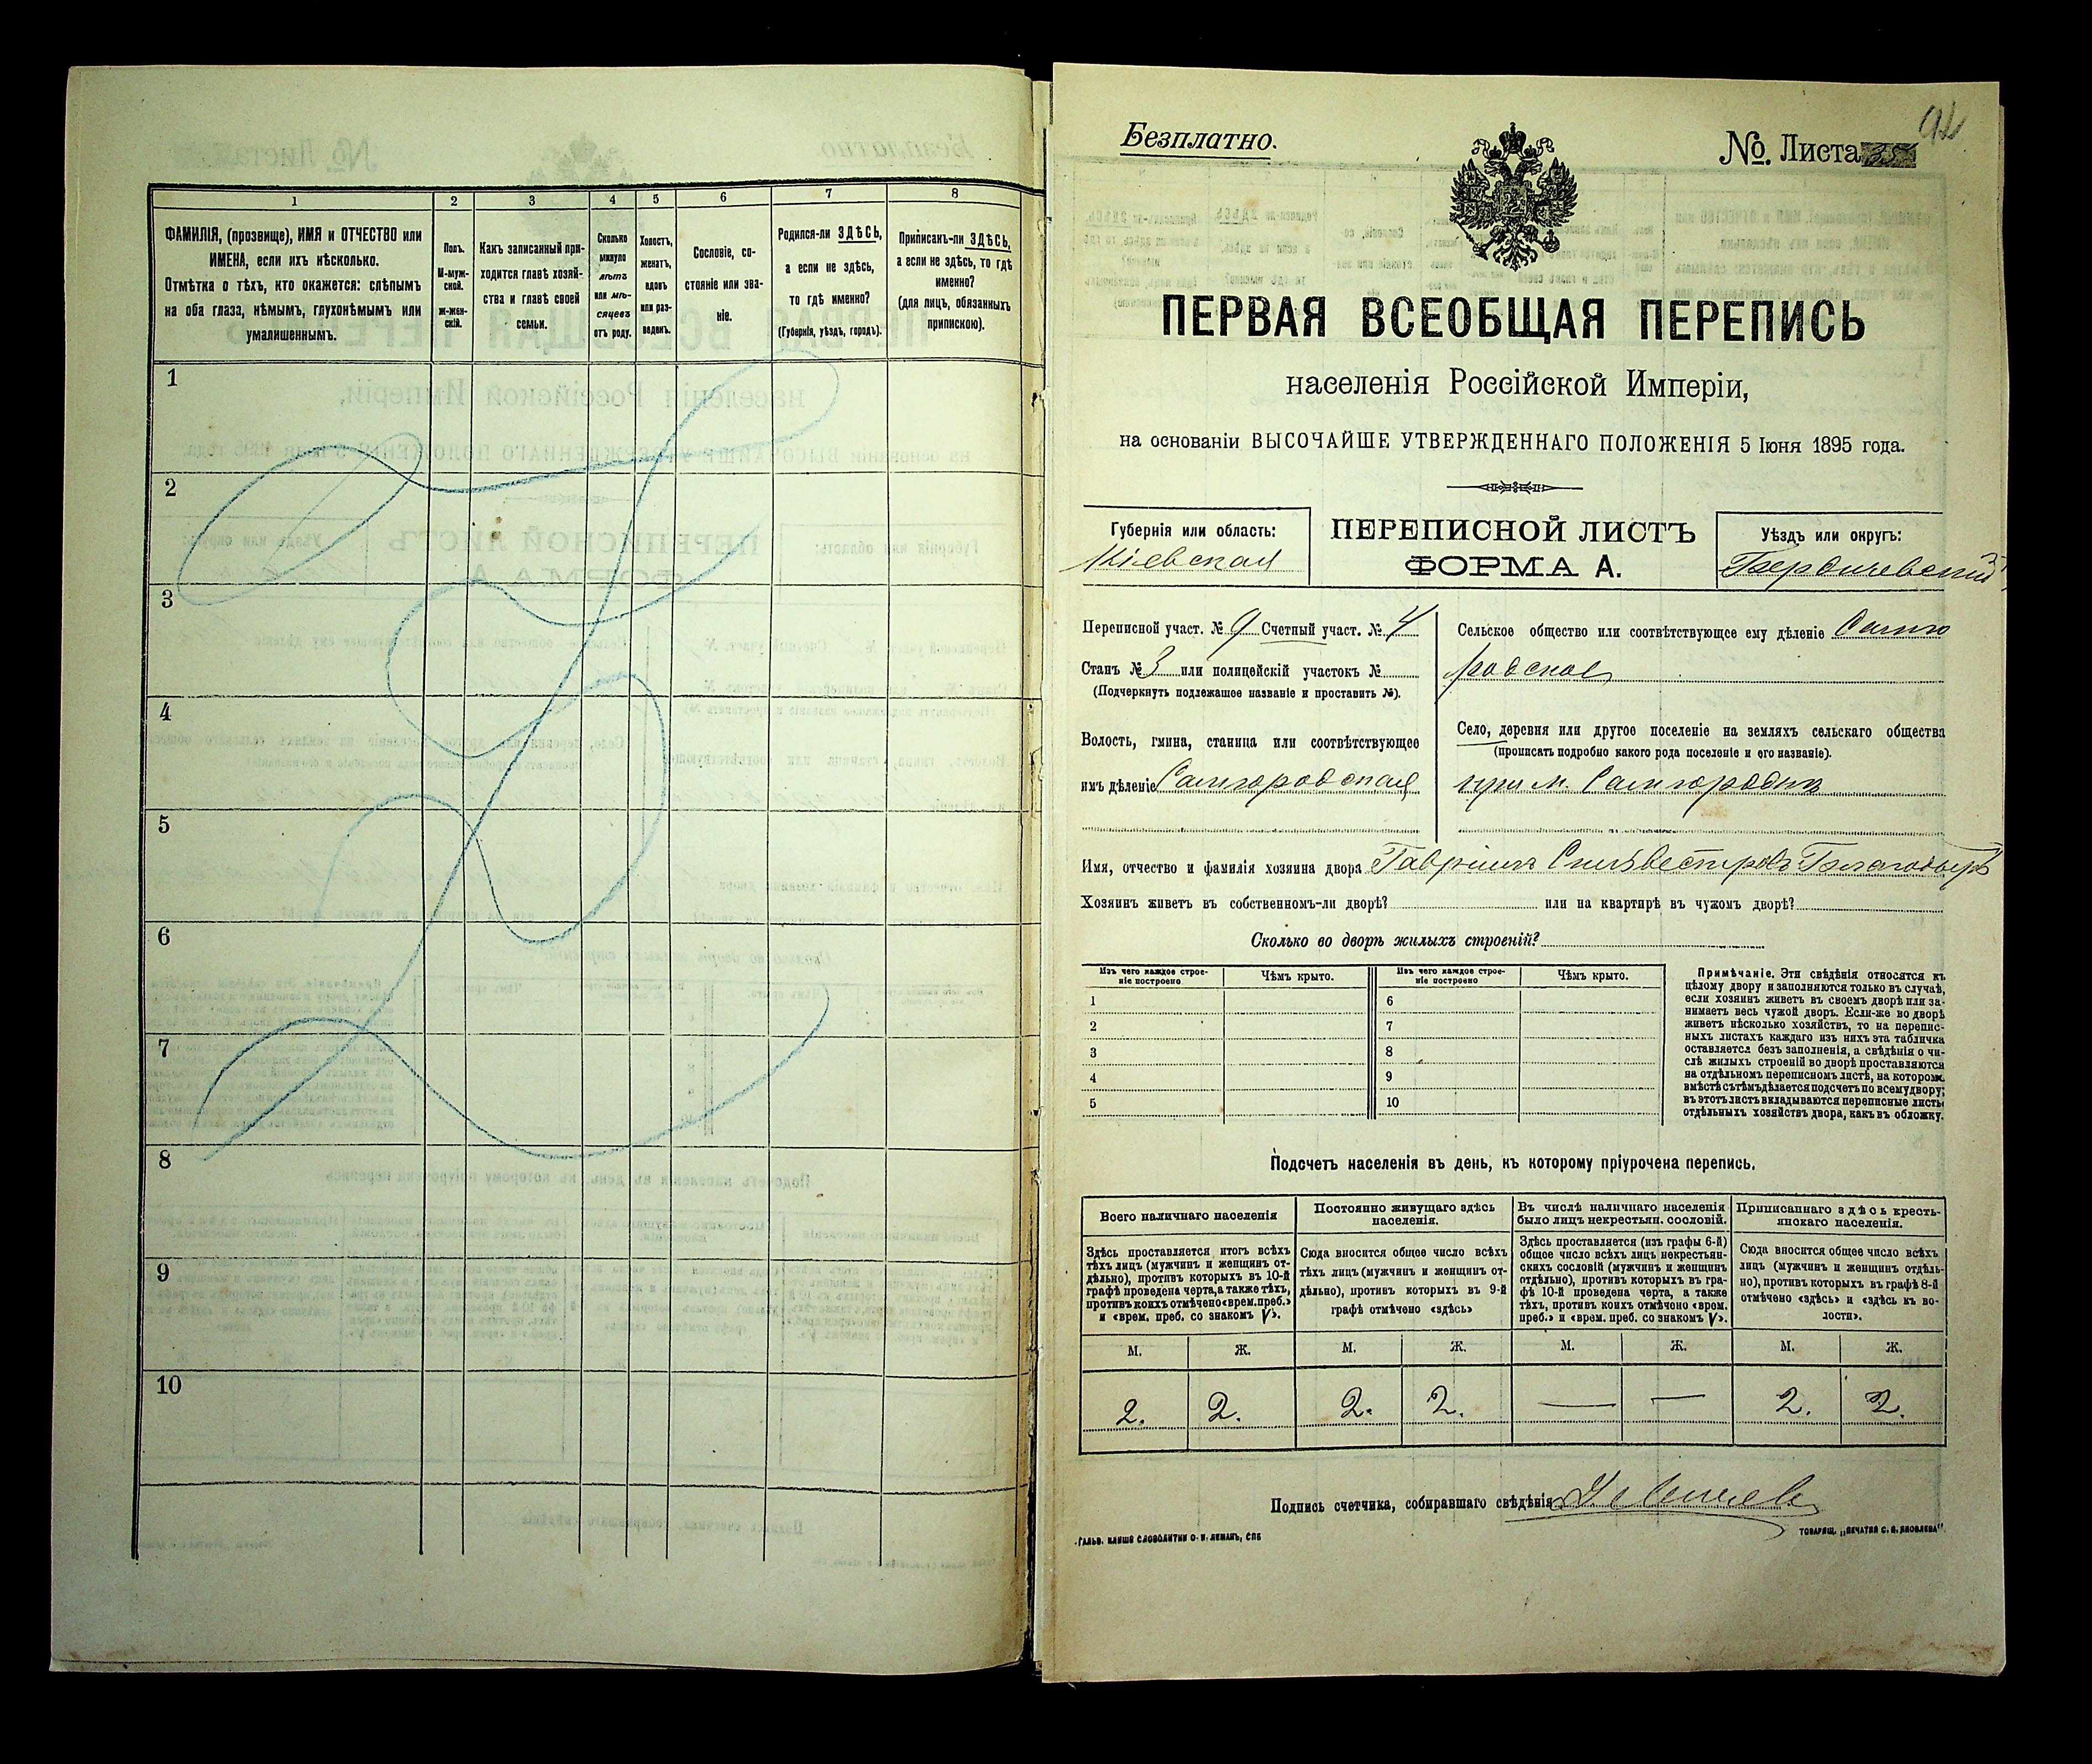 1
2
3
4
5
6
7
8
ФАМИЛІЯ, (прозвище), ИМЯ и ОТЧЕСТВО или
ИМЕНА, если ихъ нѣсколько.
Отмѣтка о тѣхъ, кто окажется: слѣпымъ
на оба глаза, нѣмымъ, глухонѣмымъ или
умалишеннымъ.
Полъ.
М-муж-
ской.
Ж-жен-
скій.
Какъ записанный при-
ходится главѣ хозяй-
ства и главѣ своей
семьи.
Сколько
минуло
лѣтъ
или мѣ-
сяцевъ
отъ роду.
Холостъ,
женатъ,
вдовъ
или раз-
веденъ.
Сословіе, со-
стояніе или зва-
ніе.
Родился-ли ЗДѢСЬ,
а если не здѣсь,
то гдѣ именно?
(Губернія, уѣздъ, городъ).
Приписанъ-ли ЗДѢСЬ,
а если не здѣсь, то гдѣ
именно?
(для лицъ, обязанныхъ
припискою).
1
2
3
4
5
6
7
8
9
10
Безплатно.
№. Листа 35
ПЕРВАЯ ВСЕОБЩАЯ ПЕРЕПИСЬ
населенія Россійской Имперіи,
на основаніи ВЫСОЧАЙШЕ УТВЕРЖДЕННАГО ПОЛОЖЕНІЯ 5 Іюня 1895 года.
Губернія или область:
Кіевская
ПЕРЕПИСНОЙ ЛИСТЪ
ФОРМА А.
Уѣздъ или округъ:
Бердичевскій
Переписной участ. № 9 Счетный участ. № 4
Станъ № 3 или полицейскій участокъ №
(Подчеркнуть подлежащее названіе и проставить №).
Волость, гмина, станица или соотвѣтствующее
имъ дѣленіе Самгородская
Сельское общество или соотвѣтствующее ему дѣленіе Самго
родское
Село, деревня или другое поселеніе на земляхъ сельскаго общества
(прописать подробно какого рода поселеніе и его названіе).
при м. Самгородкѣ
Имя, отчество и фамилія хозяина двора Гавріилъ Сильвестровъ Благодыръ
Хозяинъ живетъ въ собственномъ-ли дворѣ? или на квартирѣ въ чужомъ дворѣ?
Сколько во дворѣ жилыхъ строеній?
Изъ чего каждое строе-
ніе построено
Чѣмъ крыто.
Изъ чего каждое строе-
ніе построено
Чѣмъ крыто.
1
2
3
4
5
6
7
8
9
10
Примѣчаніе. Эти свѣдѣнія относятся къ
цѣлому двору и заполняются только въ случаѣ,
если хозяинъ живетъ въ своемъ дворѣ или за-
нимаетъ весь чужой дворъ. Если-же во дворѣ
живетъ нѣсколько хозяйствъ, то на перепис-
ныхъ листахъ каждаго изъ нихъ эта табличка
оставляется безъ заполненія, а свѣдѣнія о чи-
слѣ жилыхъ строеній во дворѣ проставляются
на отдѣльномъ переписномъ листѣ, на которомъ
вмѣстѣ съ тѣмъ дѣлается подсчетъ по всему двору;
въ этотъ листъ вкладываются переписные листы
отдѣльныхъ хозяйствъ двора, какъ въ обложку.
Подсчетъ населенія въ день, къ которому пріурочена перепись.
Всего наличнаго населенія
Постоянно живущаго здѣсь
населенія.
Въ числѣ наличнаго населенія
было лицъ некрестьян. сословій.
Приписаннаго здѣсь кресть-
янскаго населенія.
Здѣсь проставляется итогъ всѣхъ
тѣхъ лицъ (мужчинъ и женщинъ от-
дѣльно), противъ которыхъ въ 10-й
графѣ проведена черта, а также тѣхъ,
противъ коихъ отмѣчено «врем. преб.»
и «врем. преб. со знакомъ V».
Сюда вносится общее число всѣхъ
тѣхъ лицъ (мужчинъ и женщинъ от-
дѣльно), противъ которыхъ въ 9-й
графѣ отмѣчено «здѣсь»
Здѣсь проставляется (изъ графы 6-й)
общее число всѣхъ лицъ некрестьян-
скихъ сословій (мужчинъ и женщинъ
отдѣльно), противъ которыхъ въ гра-
фѣ 10-й проведена черта, а также
тѣхъ, противъ коихъ отмѣчено «врем.
преб.» и «врем. преб. со знакомъ V».
Сюда вносится общее число всѣхъ
лицъ (мужчинъ и женщинъ отдѣль-
но), противъ которыхъ въ графѣ 8-й
отмѣчено «здѣсь» и «здѣсь въ во-
лости».
М. Ж. М. Ж. М. Ж. М. Ж.
2. 2. 2. 2. — — 2. 2.
Подпись счетчика, собиравшаго свѣдѣнія
ГАЛЬВ. КЛИШЕ СЛОВОЛИТНИ О. И. ЛЕМАНЪ, СПБ
ТОВАРИЩ. „ПЕЧАТНЯ С. П. ЯКОВЛЕВА“